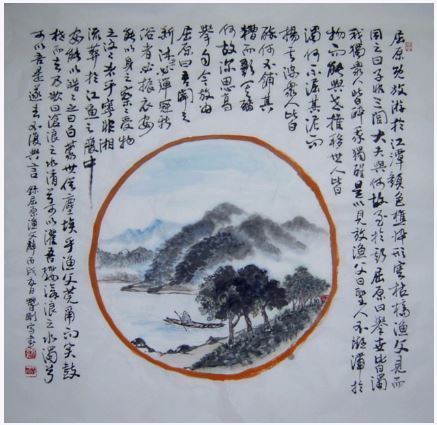 屈原既放游於江潭顏色憔悴形容枯槁漁父見而
問之曰子非三閭大夫與何故至於斯屈原曰舉世皆濁
我獨清眾人皆醉我獨醒是以見放漁父曰聖人不凝滯於
物而能與世推移世人皆
濁何不淈其泥而
揚其波眾人皆
醉何不餔其
糟而歠其醨
何故深思高
舉自令放為
屈原曰吾聞之
新沐者必彈冠新
浴者必振衣安
能以身之察察受物
之汶汶者乎寧赴湘
流葬於江魚之腹中
安能以皓皓之白蒙世俗塵埃乎漁父莞爾而笑鼓
枻而去乃歌曰滄浪之水清兮可以濯吾纓滄浪之水濁兮
可以濯吾足遂去不復與言 錄屈原漁父辭丙戌